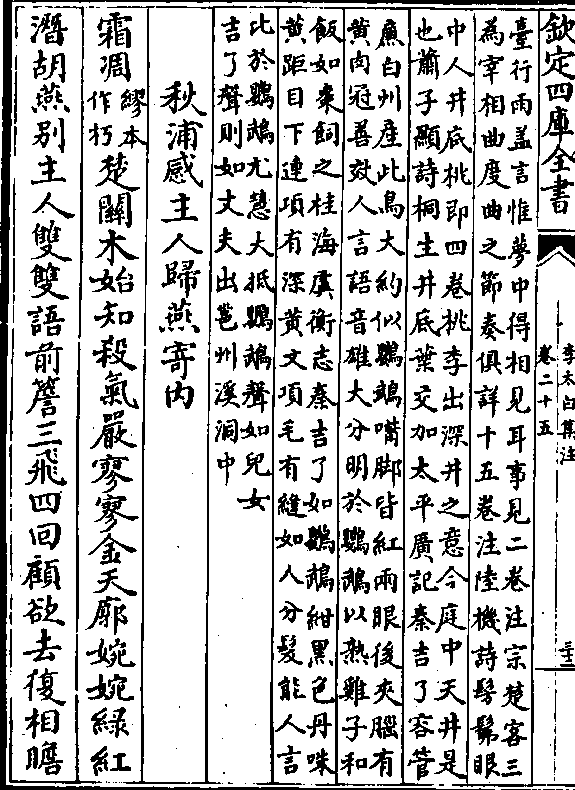 欽定四庫全書
李太白集注
卷二十五
三十三
臺行雨盖言惟夢中得相見耳事見二卷注宗楚客三
為宰相曲度曲之節奏俱詳十五卷注陸機詩髣髴眼
中人井底桃即四卷桃李出深井之意今庭中天井是
也蕭子顯詩桐生井底葉交加太平廣記秦吉了容管
廉白州産此鳥大約似鸚鵡嘴脚皆紅兩眼後夾腦有
黄肉冠善效人言語音雄大分明於鸚鵡以熟雞子和
飯如棗飼之桂海虞衡志秦吉了如鸚鵡紺黒色丹咮
黄距目下連項有深黄文項毛有縫如人分髮能人言
比於鸚鵡尤慧大抵鸚鵡聲如兒女
吉了聲則如丈夫出邕州溪洞中
秋浦感主人歸燕寄内
霜凋繆本作朽楚闗木始知殺氣嚴寥寥金天廓婉婉綠紅
潛胡燕别主人雙雙語前簷三飛四回顧欲去復相瞻